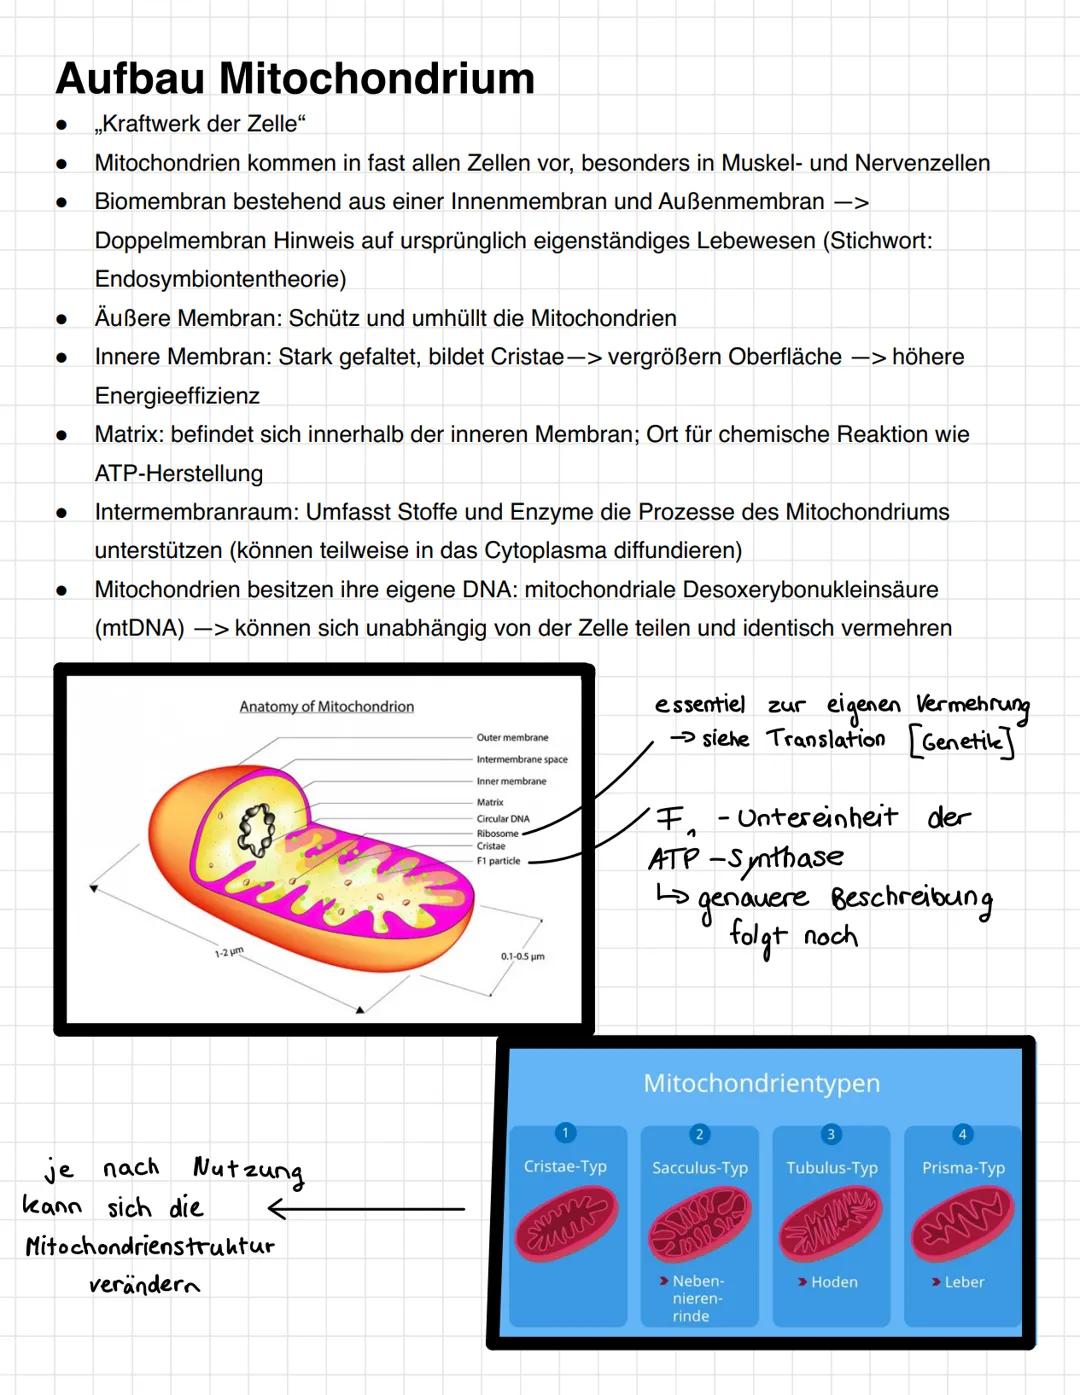 Aufbau Mitochondrium
● „Kraftwerk der Zelle“
● Mitochondrien kommen in fast allen Zellen vor, besonders in Muskel- und Nervenzellen
● Biomembran bestehend aus einer Innenmembran und Außenmembran —>
Doppelmembran Hinweis auf ursprünglich eigenständiges Lebewesen (Stichwort:
Endosymbiontentheorie)
● Äußere Membran: Schütz und umhüllt die Mitochondrien
● Innere Membran: Stark gefaltet, bildet Cristae—> vergrößern Oberfläche —> höhere
Energieeffizienz
● Matrix: befindet sich innerhalb der inneren Membran; Ort für chemische Reaktion wie
ATP-Herstellung
● Intermembranraum: Umfasst Stoffe und Enzyme die Prozesse des Mitochondriums
unterstützen (können teilweise in das Cytoplasma diffundieren)
● Mitochondrien besitzen ihre eigene DNA: mitochondriale Desoxerybonukleinsäure
(mtDNA) —> können sich unabhängig von der Zelle teilen und identisch vermehren
Anatomy of Mitochondrion
Outer membrane
Intermembrane space
Inner membrane
Matrix
Circular DNA
Ribosome
Cristae
F1 particle
1-2 µm
0.1-0.5 µm
essentiel zur eigenen Vermehrung
→ siehe Translation [Genetik]
F₁ - Untereinheit der
ATP-Synthase
↳ genauere Beschreibung
folgt noch
Mitochondrientypen
1
Cristae-Typ
2
Sacculus-Typ
Neben-
nieren-
rinde
3
Tubulus-Typ
Hoden
4
Prisma-Typ
Leber
je nach Nutzung
kann sich die
Mitochondrienstruktur
verändern